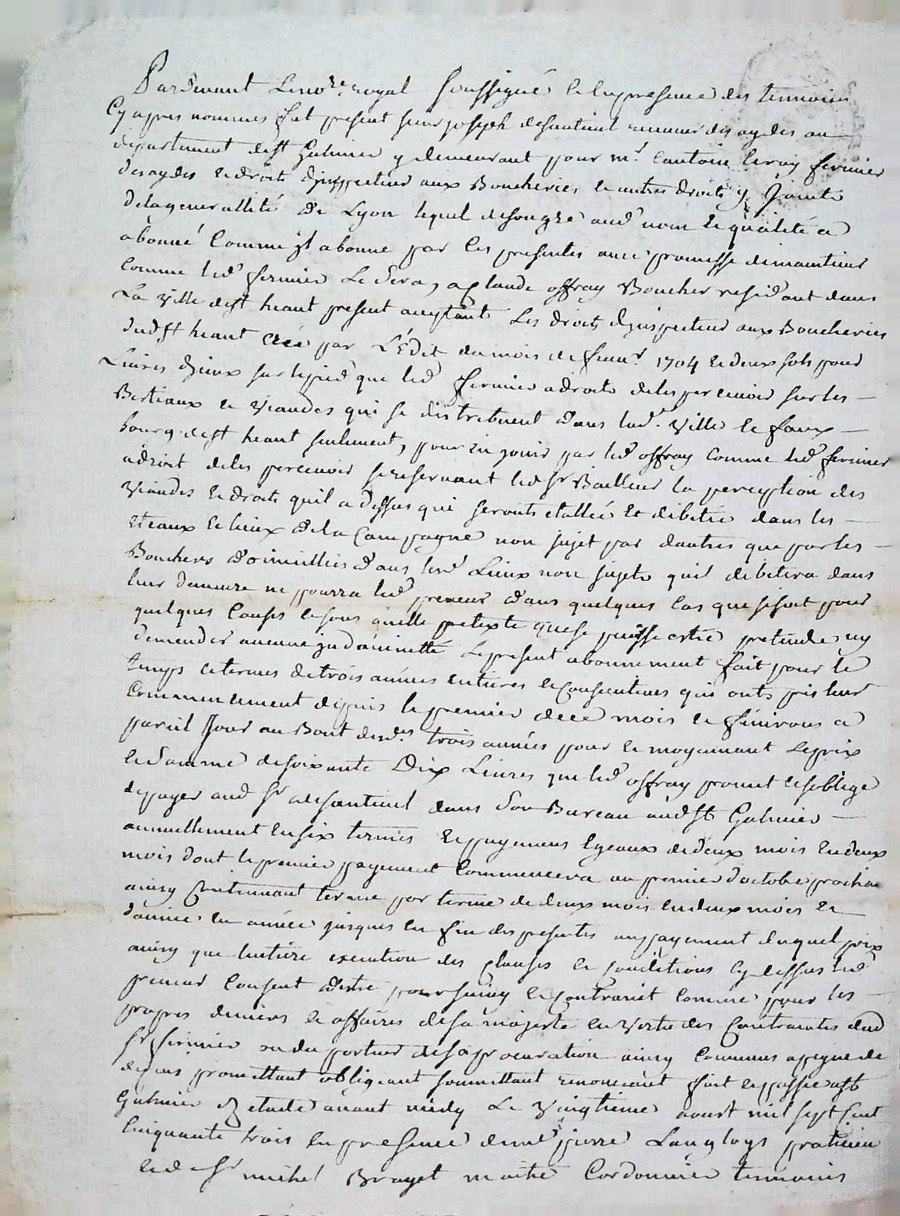 Pardevant le no.re royal soussigné et en presence des temoins
Cy apres nommes fut present sieur joseph desautieul receveur des aydes au
departement de st Galmier y demeurant pour mr. Cantoin leroy fermier
des aydes et droits djnspecteur aux Boucheries et autres droits y Joints
de la generallité de Lyon lequel de son gre aud nom et qualité a
abonné Comme jl abonne par les presentes avec promesse de maintenir
Comme led fermier le sera, a glaude offray Boucher residant dans
La Ville de st heant present acceptant Les droits djnspecteur aux Boucheries
dud st heant créé par L'Édit du mois de feuvr. 1704 et deux sols pour
Livres djceux sur le pied que led fermier a droits de les percevoir sur les
Bestiaux et viandes qui se distribuent dans lad. Ville et faux
bourg de st heant seulement, pour en jouir par led offray comme led fermier
a droit de les percevoir se reservant led sr Bailleur la perception des
viandes et droits quil a dessus qui seronts etallée et debitée dans les
eteaux et lieux de la Campagne non sujet par dautres que par les
Bouchers domicilliés dans lesd Lieux non sujets quil debitera dans
leur demeure ne pourra led preneur dans quelques Cas que se soit pour
quelques Causes et sous quelle pretexte que se puisse estre pretendre ny
demender aucune jndamnitté le present abonnement fait pour le
temps et termes de trois années entieres et Consecutives qui onts pris leur
Commencement depuis le premier de ce mois et finirons a
pareil Jour au Bout desd. trois années pour et moyannant le prix
et Somme de soixante Dix Livres que led offray promet et soblige
de payer aud sr desautieul dans son Bureau aud st Galmier
annuellement en six termes et payemens egeaux de deux mois en deux
mois dont le premier payement Commencera au premier doctobe prochain
ainsy Continuant terme par terme de deux mois en deux mois et
dannée en année jusques en fin des presentes au payement duquel prix
ainsy que lentiere execution des Clauses et Conditions cy dessus led
preneur Consent destre poursuivy et Contraint comme pour les
propres deniers et affaires de sa majesté en vertu des Contraintes dud
sr fermier ou du porteur de sa procuration ainsy Convenus a peyne de
depens promettant obligeant soumettant renonceant fait et passé a st
Galmier Etude avant midy Le vingtieme aoust mil sept Cent
Cinquante trois en presence de me pierre Langloys praticien
et de sr michel Brayet maitre Cordonnier temoins